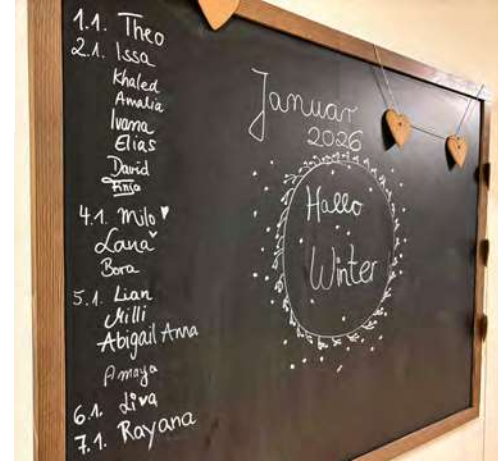 1.1. Theo
2.1. Issa
Khaled
Amalia
Ivana
Elias
David
Finja
4.1. Milo
Lana
Bora
5.1. Lian
Milli
Abigail Anna
Amaya
6.1. Liva
7.1. Rayana
Januar
2026
Hallo
Winter